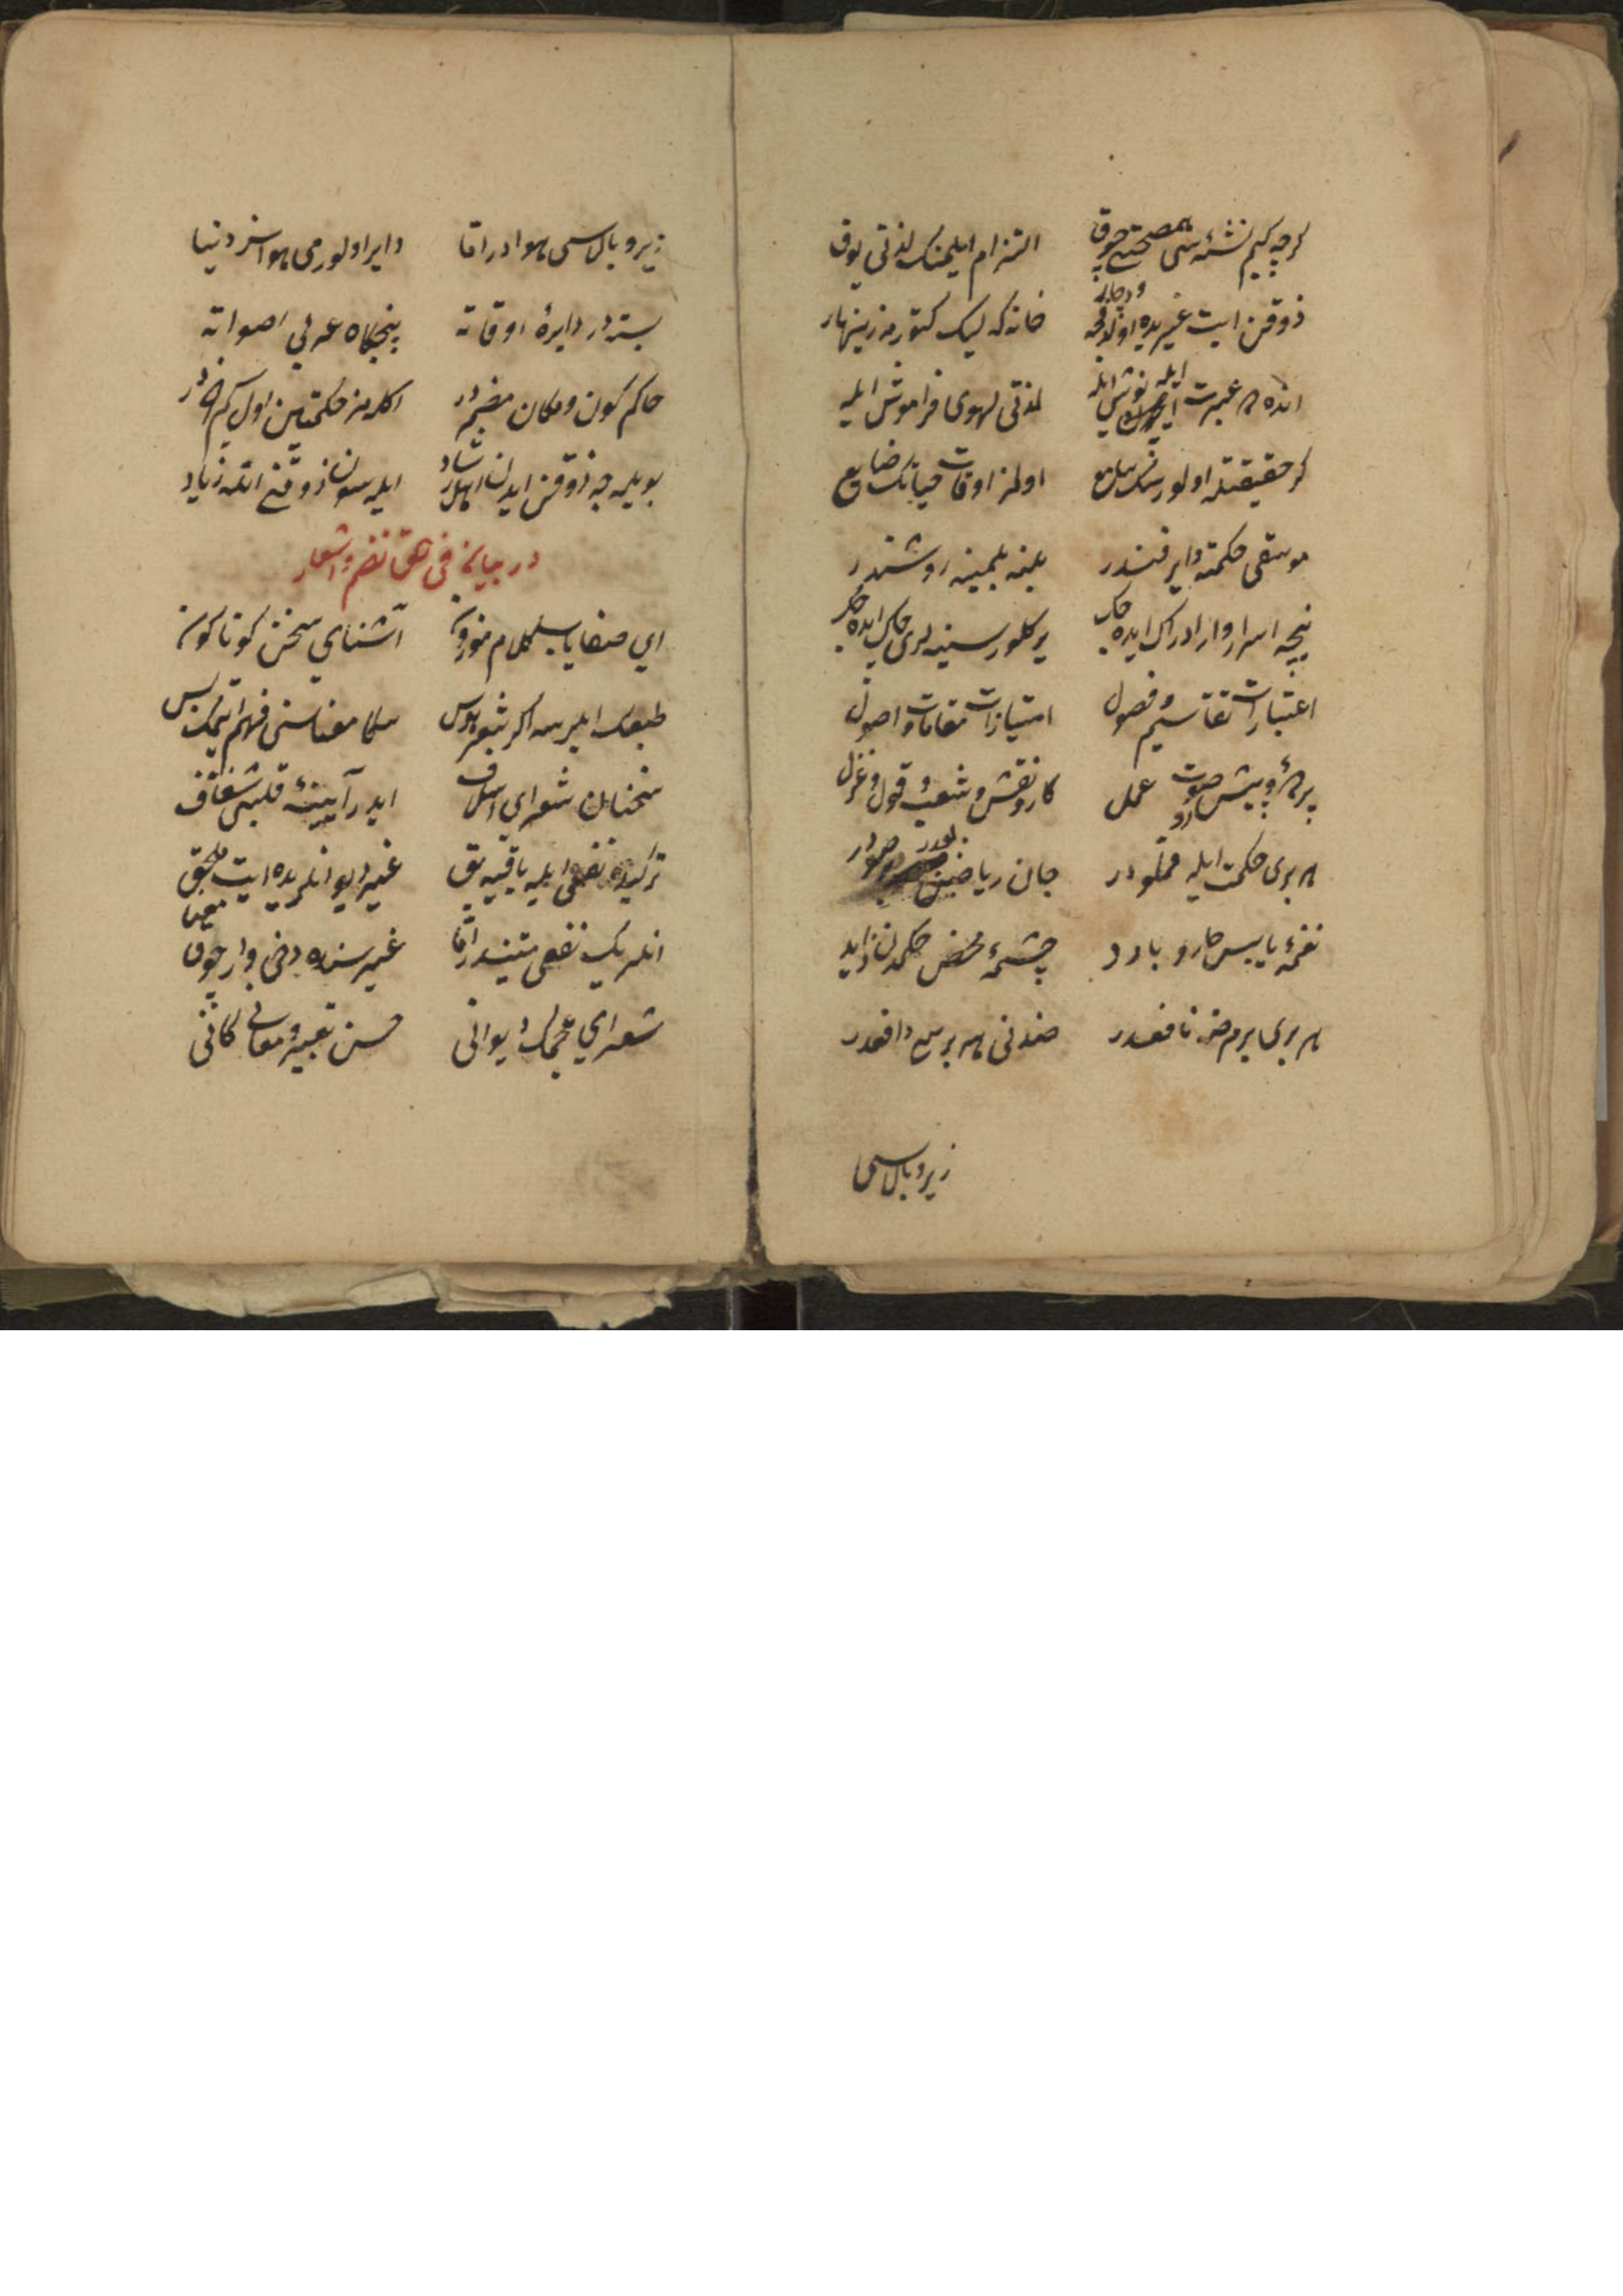 گرچه کیم نشئه سی یوق صحبتی چوق التزام ایلمنک لذتی یوق
ذوقن ایت غیریده اولدقجه دچار خانه که لیک کتورمه زینهار
انده عبرت ایله نوش ایله لذتی لهوی فراموش ایله
گر حقیقتله اولورسنک سامع اولمز اوقات حیاتک ضایع
موسقی حکمته دایر فندر بلنه بلمینه روشندر
نیجه اسرار وار ادراک ایده جک یر کلور سینه لری چاک ایده جک
اعتبارات تقاسیم و فصول امتیازات مقامات و اصول
پیشرو صوت عمل کار و نقش و شعبه و قول و غزل
هر بری حکمت ایله مملودر جان ریاضین
نغمه یابس حار و بارد چشمه محض حکمدن زاید
هر بری بر مرضه نافعدر ضدنی هر بریسی دافعدر
زیر و بالاسی
زیر و بالاسی هوادر اما دایر اولورمی هواسز دنیا
بستدر دایره اوقاته پنجگاه عربی اصواته
حاکم کون و مکان مضمردر اکلمز حکمتین اول کیم خردر
بویلجه ذوقن ایدن اهل رشاد ایلسون ذوقنی انک زیاد
در بیان فن نظم و اشعار
ای صفایاب کلام موزون آشنای سخن کوناکون
طبعک ایلرسه اکر شعر هوس سکا معناسنی فهم ایتمک بس
سخنان شعرای اسلاف ایدر آیینه قلبی شفاف
ترکیده نفعی ایله باقی یه بق غیر دیوانلریده ایت ملحق
انلریک نظمی متیندر اما غیرسنده دخی وار چوق معنا
شعرای عجمک دیوانی حسن تعبیر و معانی کانی